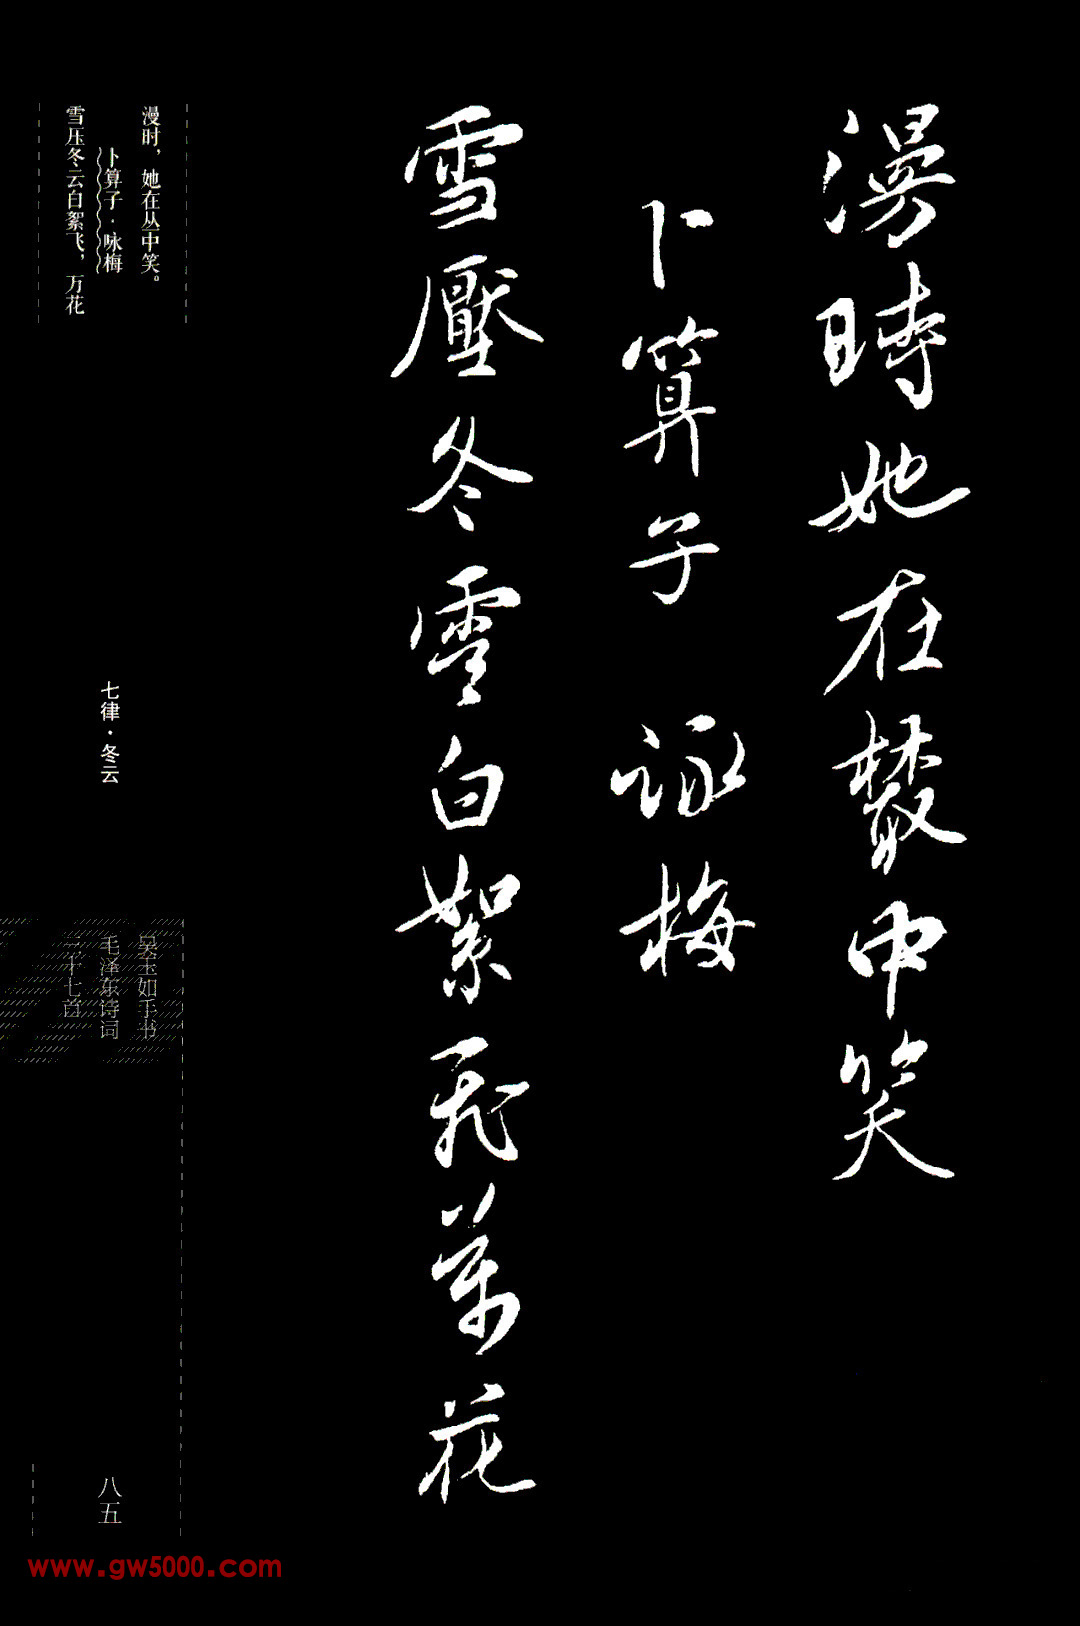 漫時她在叢中笑
卜算子 詠梅
雪壓冬雲白絮飛萬花
漫时，她在丛中笑。
卜算子·咏梅
雪压冬云白絮飞，万花
七律·冬云
吴玉如手书
毛泽东诗词
三十七首
八五
www.gw5000.com